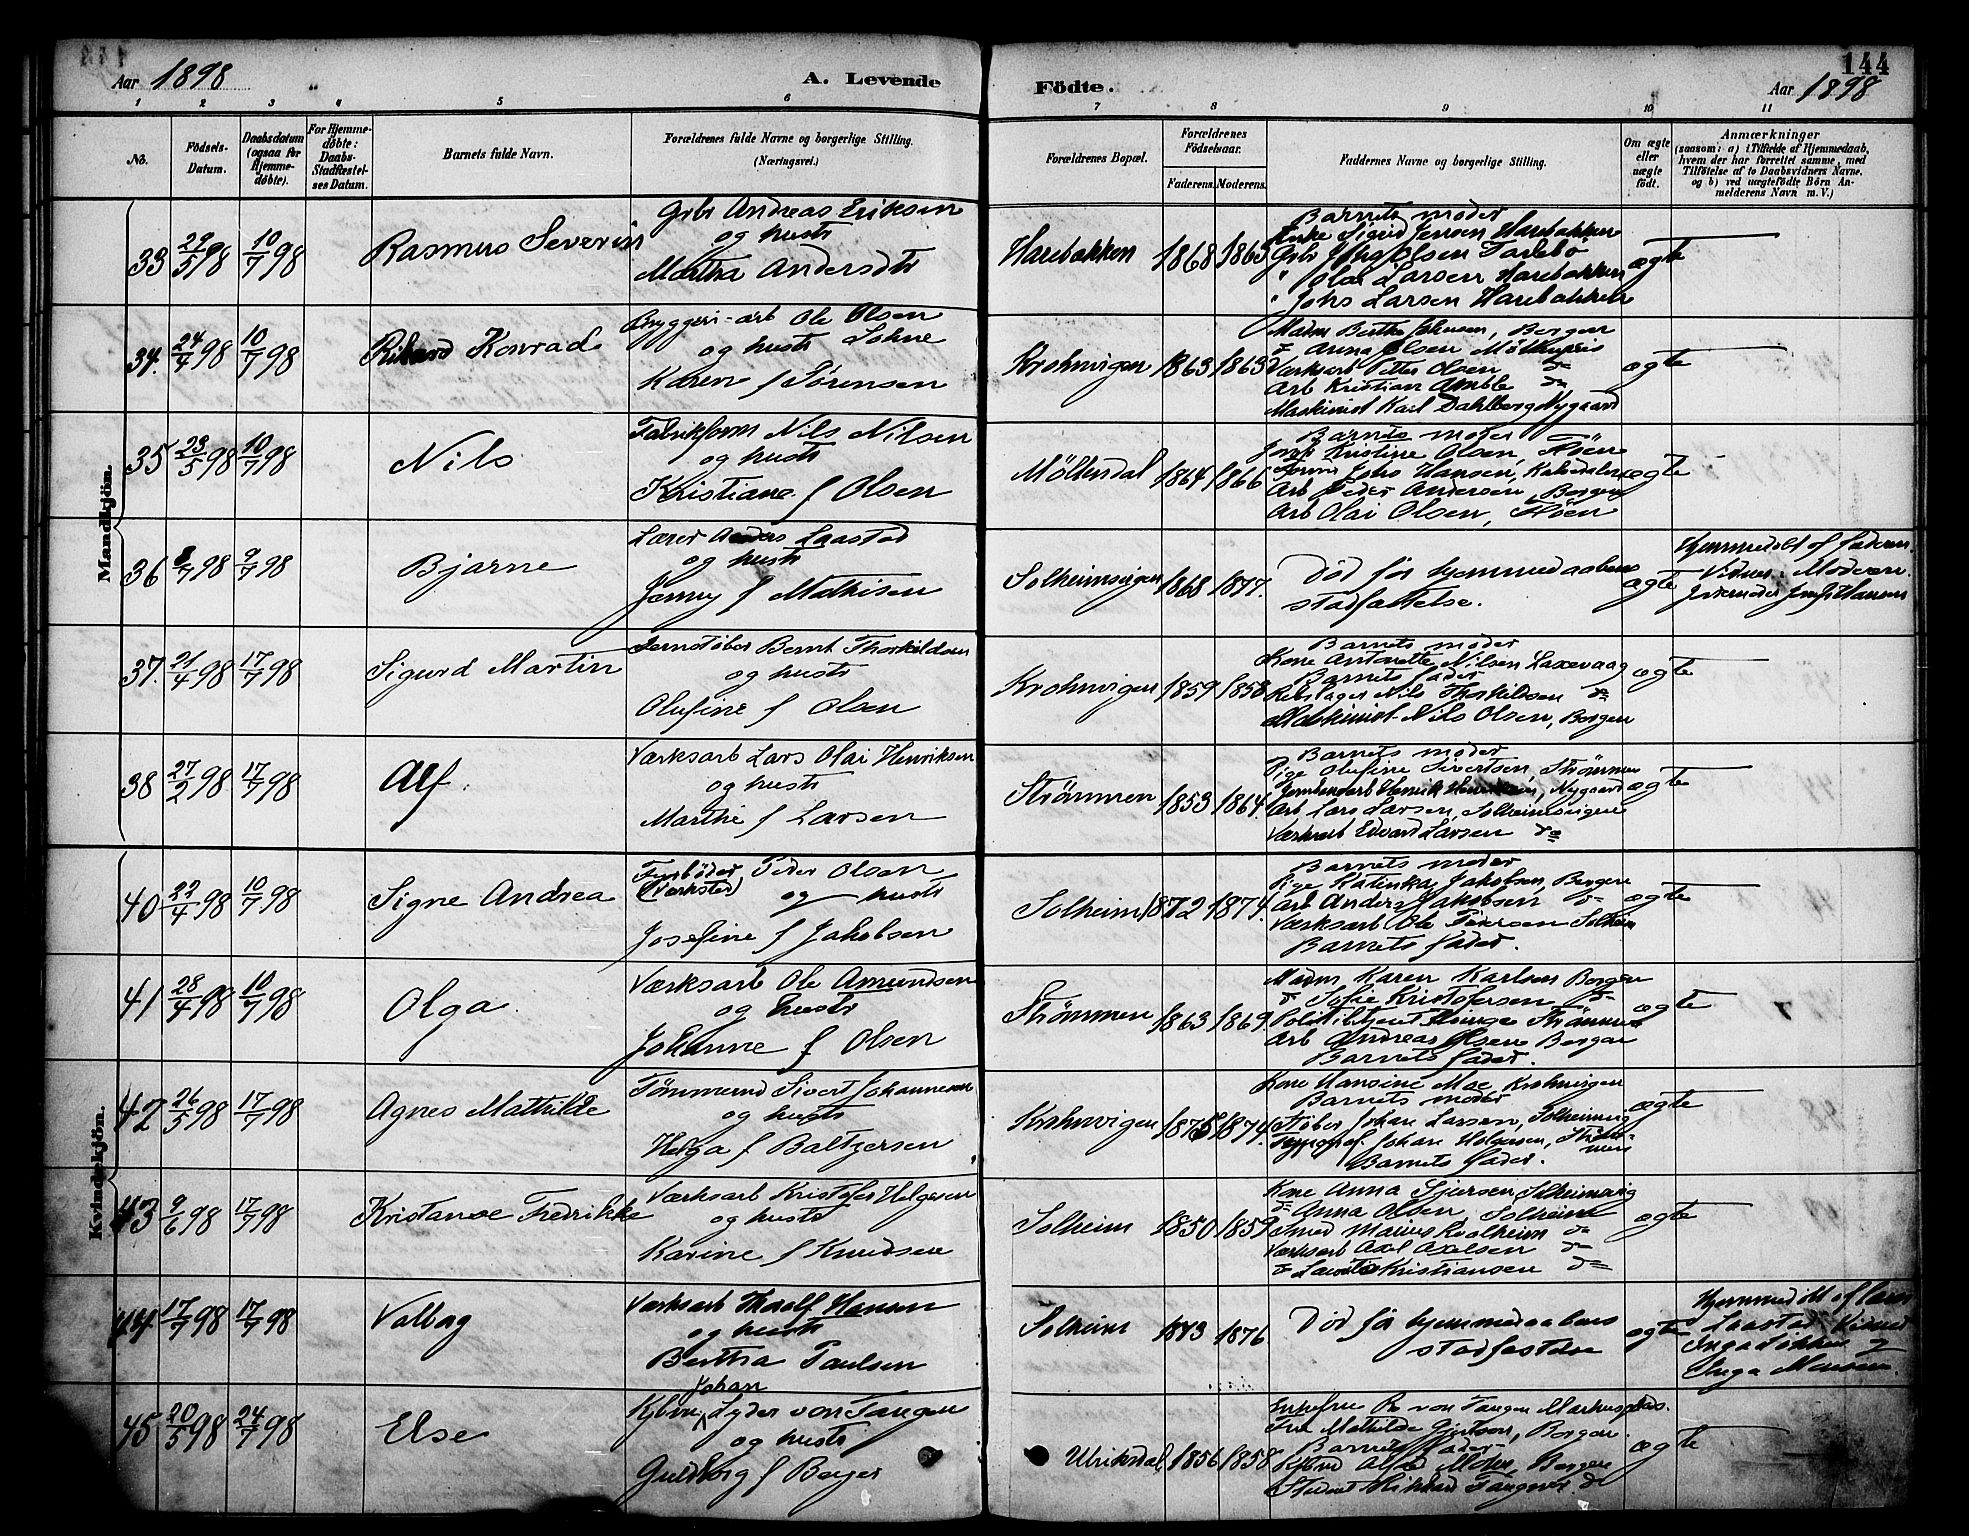 Aar 1898
A. Levende
Födte.
144
Aar 1898
1 2 3 4 5 6 7 8 9 10 11
No.
Födsels-
Datum.
Daabsdatum
(ogsaa for
Hjemme-
döbte).
For Hjemme-
döbte:
Daabs-
Stadfæstel-
ses Datum.
Barnets fulde Navn.
Forældrenes fulde Navne og borgerlige Stilling.
(Næringsvei.)
Forældrenes Bopæl.
Forældrenes
Födselsaar.
Faderens. Moderens.
Faddernes Navne og borgerlige Stilling.
Om ægte
eller
uægte
födt.
Anmærkninger
(saasom: a) i Tilfælde af Hjemmedaab,
hvem der har forrettet samme, med
Tilföielse af to Daabsvidners Navne,
og b) ved uægtefödte Börn An-
melderens Navn m. V.)
Mandkjön.
33 29/5 98 10/7 98 Rasmus Severin
Gbr Andreas Eriksen
og hustr
Martha Andersdtr
Harebakken 1868 1863
Barnets moder
Sigrid Jensen Harebakken
Gbr Olsen
" Olai Larsen Harebakken
" Johs Larsen Harebakken
ægte
34. 24/4 98 10/7 98 Rikard Konrad
Bryggeri-arb Ole Olsen
og hustr Løhne
Karen f Sørensen
Krohnvigen 1863 1863
Madm Berthe Johnsen, Bergen
do Anna Olsen Möllenpris
Værksarb Petter Olsen do
Arb Kristian Amble do
Maskinist Karl Dahlberg Nygaard
ægte
35 23/5 98 10/7 98 Nils
Fabrikform Nils Nilsen
og hustr
Kristiane f Olsen
Möllendal 1864 1866
Barnets moder
Kristine Olsen, Höen
Johs Hansen, Kalvedalen
Arb Peder Andersen, Bergen
Arb Olai Olsen, Höen
ægte
36 8/7 98 9/7 98 Bjarne
Lærer Anders Laastad
og hustr
Jenny f Mathisen
Solheimsvigen 1868 1877.
Død før hjemmedaabens
stadfæstelse.
ægte
Hjemmedöbt af faderen.
Vidner: Modere
Jordemoder Hansen
37. 21/4 98 17/7 98 Sigurd Martin
Jernstøber Bernt Thorkildsen
og hustr
Olufine f Olsen
Krohnvigen 1859 1858
Barnets moder
Kone Antonette Nilsen Laxevaag
Barnets fader
Rebslager Nils Thorkildsen do
Maskinist Nils Olsen, Bergen
ægte
38 27/2 98 17/7 98 Alf.
Værksarb Lars Olai Henriksen
og hustr
Marthe f Larsen
Strömmen 1853 1864.
Barnets moder
Pige Olufine Sivertsen, Strömmen
Jernbanearb Henrik Henriksen, Nygaard
Arb Lars Larsen, Solheimsvigen
Værksarb Edvard Larsen do
ægte
Kvindekjön.
40 22/4 98 10/7 98 Signe Andrea
Fyrböder Peder Olsen
(Værksted) og hustr
Josefine f Jakobsen
Solheim 1872 1874.
Barnets moder
Pige Katinka Jakobsen, Bergen
Arb Anders Jakobsen do
Værksarb Ole Petersen Solheim
Barnets fader.
ægte
41 28/4 98 10/7 98 Olga.
Værksarb Ole Amundsen
og hustr
Johanne f Olsen
Strömmen 1863 1869.
Madm Karen Karlsen Bergen
do Sofie Kristofersen do
Politibetjent Strömmen
Arb Andreas Olsen Bergen
Barnets fader.
ægte
42 26/5 98 17/7 98 Agnes Mathilde
Tømmermd Sivert Johannesen
og hustr
Helga f Baltzersen
Krohnvigen 1875 1874.
Kone Hansine Moe Krohnvigen
Barnets moder
Støber Johan Larsen, Solheimsvig
Typograf Johan Holgersen, Ström-
men
Barnets fader.
ægte
43 9/6 98 17/7 98 Kristanse Fredrikke
Værksarb Kristofer Helgesen
og hustr
Karine f Knudsen
Solheim 1850 1859
Kone Anna Sjursen Solheimsvig
do Anna Olsen Solheim
Smed Marius Kvalheim do
Værksarb Axel Axelsen do
do Laurits Kristiansen do
ægte
44. 17/7 98 17/7 98 Valborg
Værksarb Thoralf Hansen
og hustr
Bertha Paulsen
Solheim 1873 1876
Død før hjemmedaabens
stadfæstelse
ægte
Hjemmedöbt af lærer
Laastad. Vidner
Inga Løkken
Inga Monsen.
45 20/5 98 24/7 98 Else
Johan
Kjbm. Lyder von Tangen
og hustr
Guldborg f Berger
Ulriksdal 1856 1858
Enkefru von Tangen Markusplads.
Fru Mathilde Bergen.
Barnets fader
Bergen
Student Rikhard Tangen do
ægte